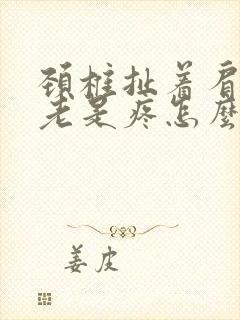 頸椎扯着肩
老是疼怎麼
姜皮